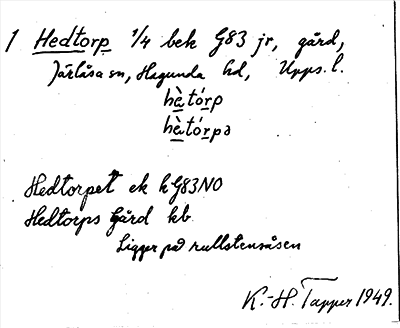 1 Hedtorp 1/4 bek G83 jr, gård,
Järlåsa sn, Hagunda hd, Upps. l.
hè̱tó̱rp
hè̱tó̱rpə
Hedtorpet ek k G83NO
Hedtorps Gård kb.
Ligger på rullstensåsen
K.-H. Tapper 1949.